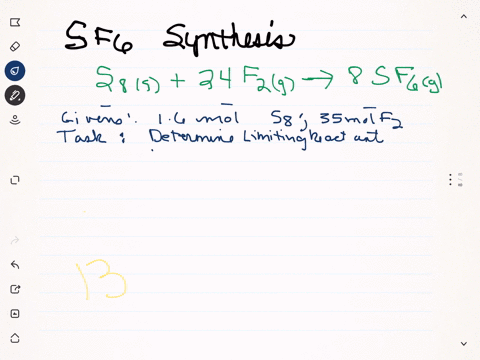 SF6 Synthesis
S8(s) + 24 F2(g) → 8 SF6(g)
Givens: 1.6 mol S8; 35 mol F2
Task: Determine Limiting Reactant
13